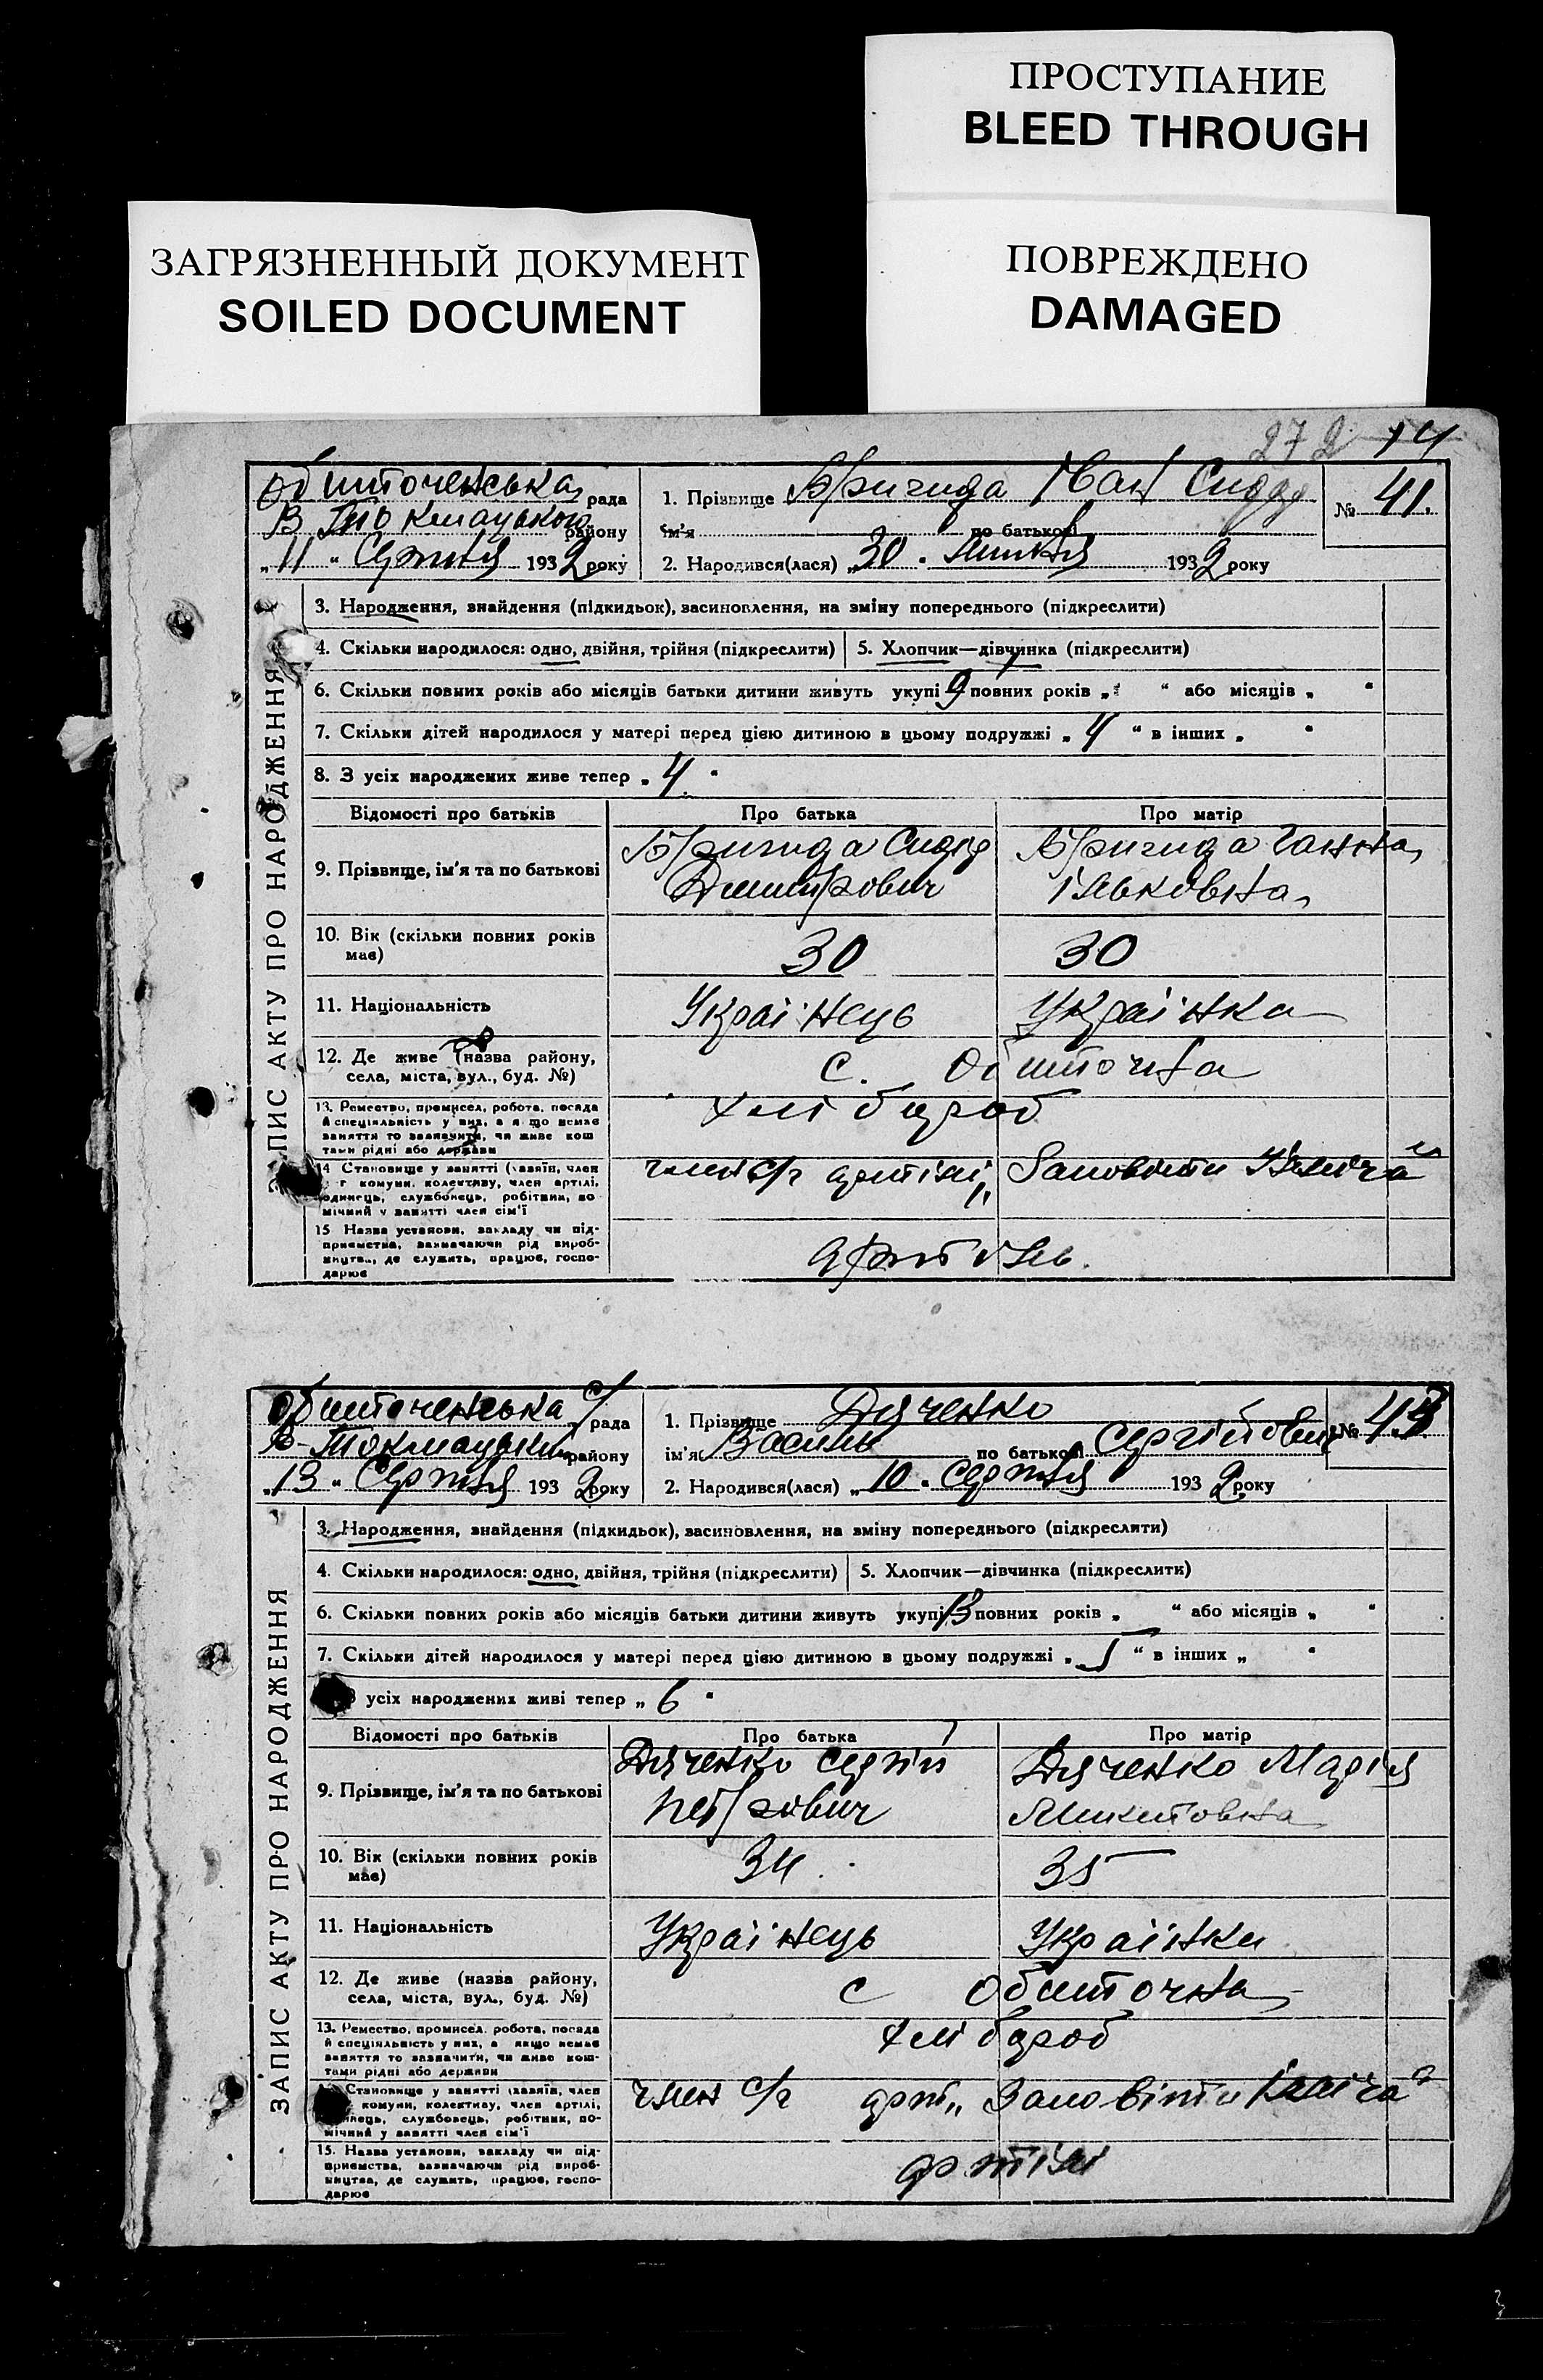 ПРОСТУПАНИЕ
BLEED THROUGH
ЗАГРЯЗНЕННЫЙ ДОКУМЕНТ
SOILED DOCUMENT
ПОВРЕЖДЕНО
DAMAGED
272 14
ЗАПИС АКТУ ПРО НАРОДЖЕННЯ
Обиточенська рада
В Токмацького району
„11“ Серпня 1932 року
1. Прізвище Бригида Іван Сидор
ім'я по батькові
2. Народився(лася) „30“ липня 1932 року
№ 41.
3. Народження, знайдення (підкидьок), засиновлення, на зміну попереднього (підкреслити)
4. Скільки народилося: одно, двійня, трійня (підкреслити)
5. Хлопчик—дівчинка (підкреслити)
6. Скільки повних років або місяців батьки дитини живуть укупі 9 повних років „ “ або місяців „ “
7. Скільки дітей народилося у матері перед цією дитиною в цьому подружжі „4“ в інших „ “
8. З усіх народжених живе тепер „4“
Відомості про батьків Про батька Про матір
9. Прізвище, ім'я та по батькові
Бригида Сидір
Дмитрович
Бригида Ганна
Ільковна
10. Вік (скільки повних років має)
30 30
11. Національність
Українець Українка
12. Де живе (назва району,
села, міста, вул., буд. №)
с. Обиточна
13. Ремество, промисел, робота, посада
й спеціяльність у них, а якщо немає
заняття то зазначити, чи живе кош
тами рідні або держави
хлібороб
14 Становище у занятті (хазяїн, член
г комуни, колективу, член артілі,
одинець, службовець, робітник, по
мічний у занятті член сім'ї
член с/г артілі „Заповіти Ілліча“
15 Назва установи, закладу чи під-
приємства, зазначаючи рід вироб-
ництва, де служить, працює, госпо-
дарює
артіль.
ЗАПИС АКТУ ПРО НАРОДЖЕННЯ
Обиточенська с/рада
В-Токмацьким району
„13“ Серпня 1932 року
1. Прізвище Дяченко
ім'я Василь по батькові Сергійович
2. Народився(лася) „10“ Серпня 1932 року
№ 43
3. Народження, знайдення (підкидьок), засиновлення, на зміну попереднього (підкреслити)
4. Скільки народилося: одно, двійня, трійня (підкреслити)
5. Хлопчик—дівчинка (підкреслити)
6. Скільки повних років або місяців батьки дитини живуть укупі 13 повних років „ “ або місяців „ “
7. Скільки дітей народилося у матері перед цією дитиною в цьому подружжі „5“ в інших „ “
усіх народжених живі тепер „6“
Відомості про батьків Про батька Про матір
9. Прізвище, ім'я та по батькові
Дяченко Сергій
Петрович
Дяченко Марія
Микитовна
10. Вік (скільки повних років має)
34. 35
11. Національність
Українець Українка
12. Де живе (назва району,
села, міста, вул., буд. №)
с Обиточна
13. Ремество, промисел, робота, посада
й спеціяльність у них, а якщо немає
заняття то зазначити, чи живе кош-
тами рідні або держави
хлібороб
Становище у занятті (хазяїн, член
комуни, колективу, член артілі,
одинець, службовець, робітник, по-
мічний у занятті член сім'ї
член с/г арт. „Заповіти Ілліча“
15. Назва установи, закладу чи під-
приємства, зазначаючи рід вироб-
ництва, де служить, працює, госпо-
дарює
артілі